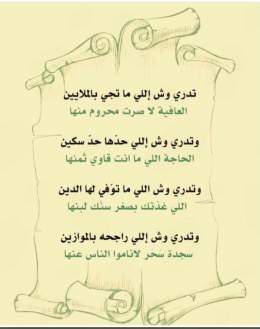 تدري وش إللي ما تجي بالملايين
العافية لا صرت محروم منها
وتدري وش إللي حدّها حدّ سكين
الحاجة اللي ما انت قاوي ثمنها
وتدري وش اللي ما توّفي لها الدين
اللي غذتك بصغر سنّك لبنها
وتدري وش إللي راجحه بالموازين
سجدة سحر لاناموا الناس عنها